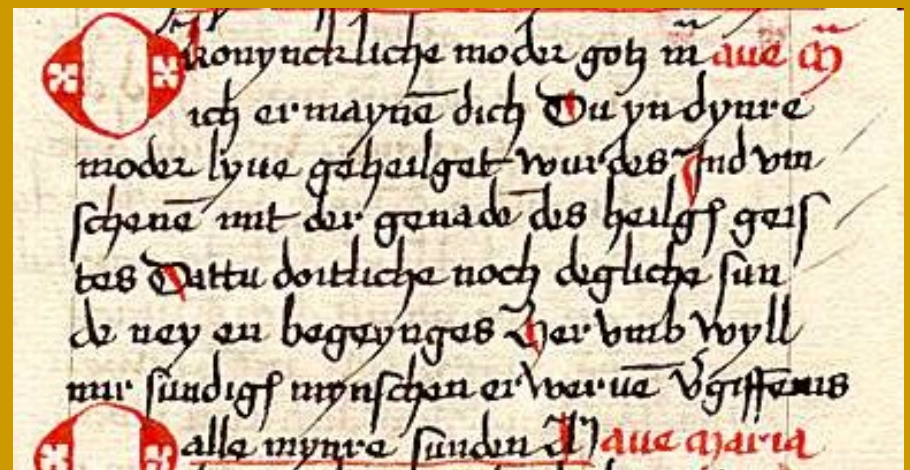 O konynckliche moder gotz m̄ aue m̄
ich ermaynē dich Du yn dynre
moder lyue geheilget wurdes Vnd vm
schenē mit der genadē des heilgē geis
tes Dattu doitliche noch degliche sun
de ney en begeynges Her vmb wyll
mir sundigē mynschen erweruē v̄giffenis
alle mynre sunden aue maria